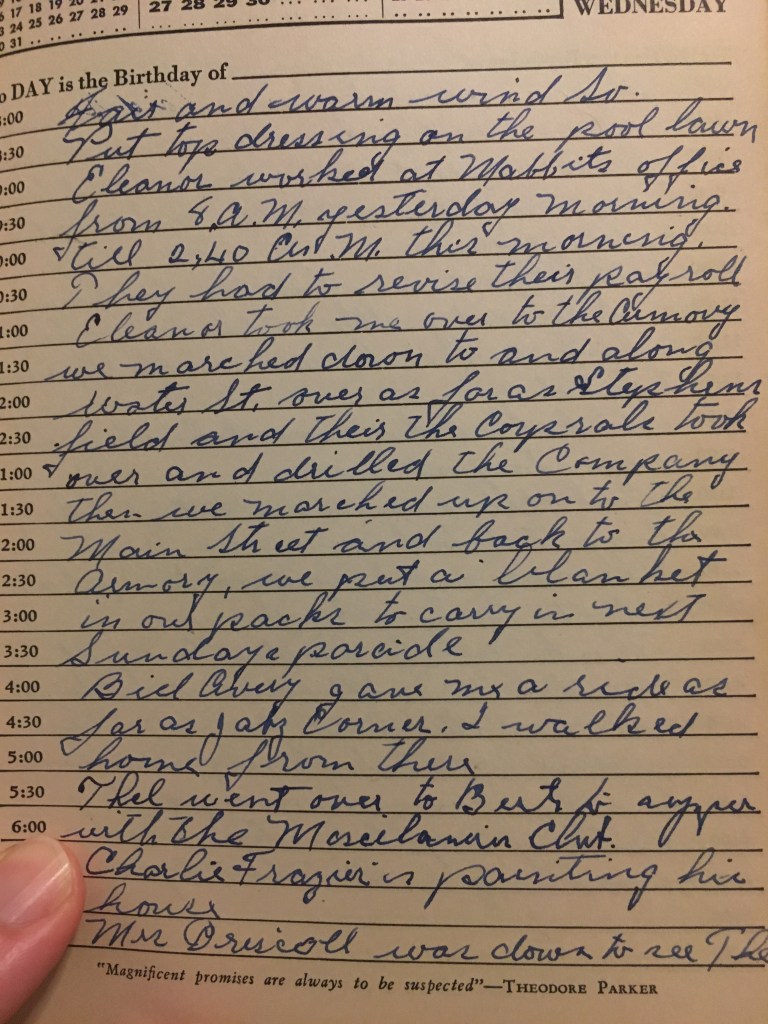 16 17 18 19 20
24 25 26 27 28 29 27 28 29 30 ... ... ...
31 .. .. .. .. .. WEDNESDAY
DAY is the Birthday of
:00 and warm wind So.
:30 Put top dressing on the pool lawn
:00 Eleanor worked at Mabbits office
:30 from 8, A.M. yesterday morning.
:00 till 2,40 M. this morning.
:30 They had to revise their payroll
1:00 Eleanor took me over to the
1:30 we marched down to and along
2:00 Water St. over as far as Stephens
2:30 field and their the Coyprals took
1:00 over and drilled the Company
1:30 then we marched up on to the
2:00 Main Street and back to the
2:30 Armory, we put a blanket
3:00 in our packs to carry in next
3:30 Sundays parade
4:00 Bill Avery gave me a ride as
4:30 far as Corner. I walked
5:00 home from there
5:30 Thel went over to Berts to supper
6:00 with the Club.
Charlie Frazier is painting his
house
Mrs Driscoll was down to see The
"Magnificent promises are always to be suspected"—THEODORE PARKER